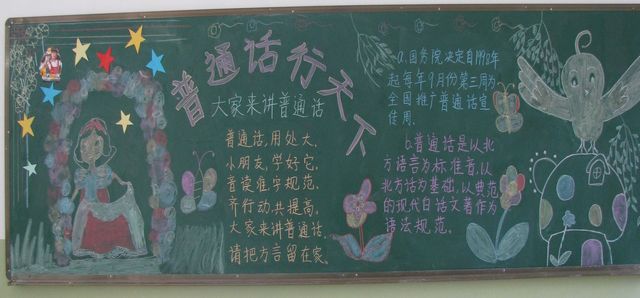 普通话行天下
大家来讲普通话
普通话,用处大,
小朋友,学好它,
音读准,字规范,
齐行动,共提高。
大家来讲普通话,
请把方言留在家。
a.国务院决定自1998年
起每年9月份第三周为
全国推广普通话宣
传周.
b.普通话是以北
方语言为标准音,以
北方话为基础,以典范
的现代白话文著作为
语法规范。